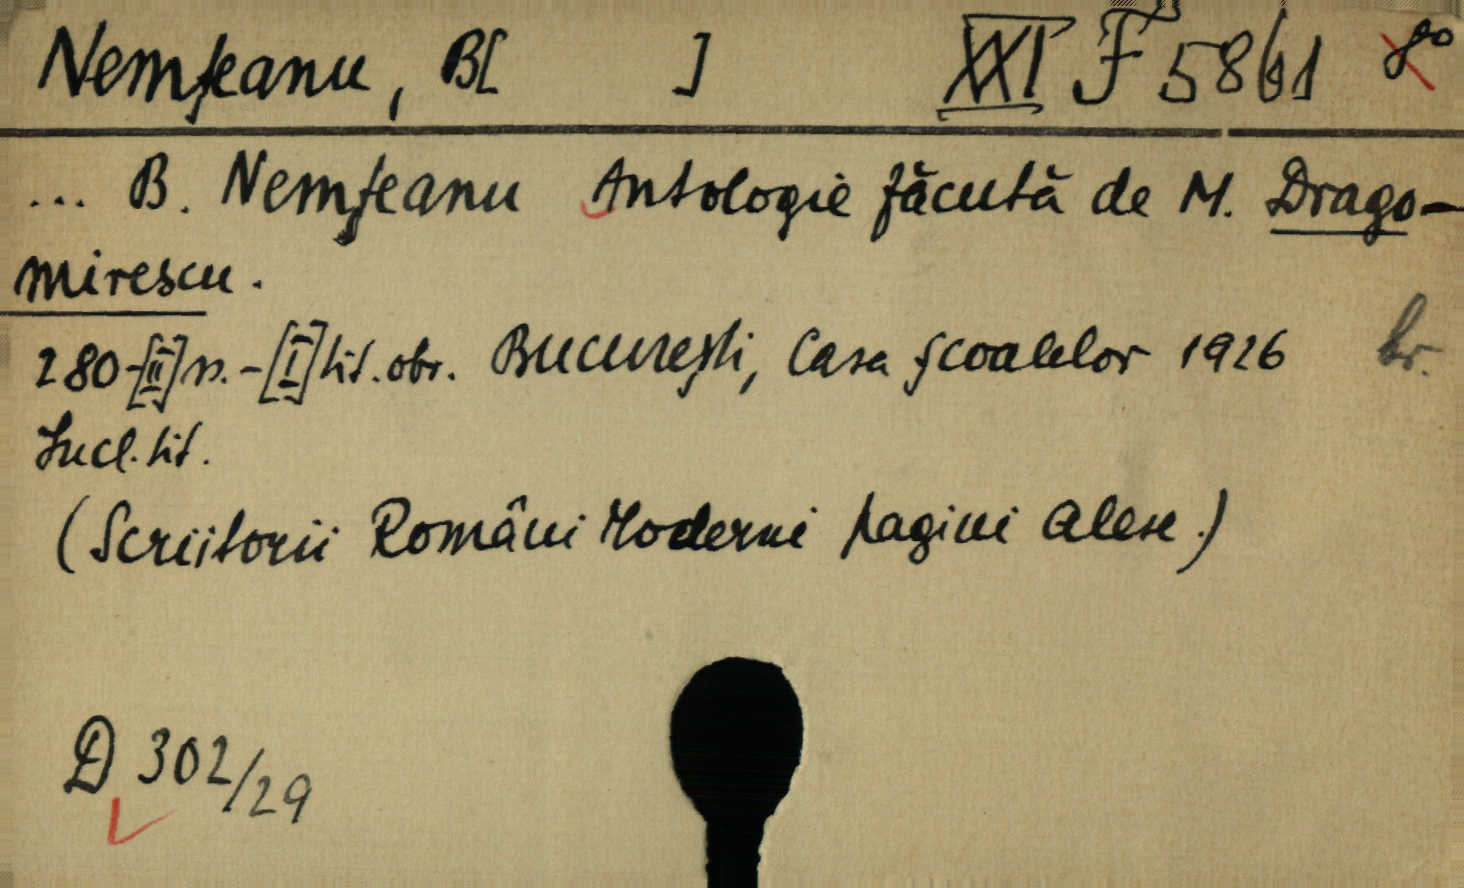 Nemțeanu, B[ ] XXI F 5861 8°
... B. Nemțeanu Antologie făcută de M. Drago-
mirescu.
280-[II] p. -[I] tit. obr. București, Casa Școalelor 1926 br.
Incl. tit.
(Scriitorii Români Moderni Pagini Alese.)
D 302/29